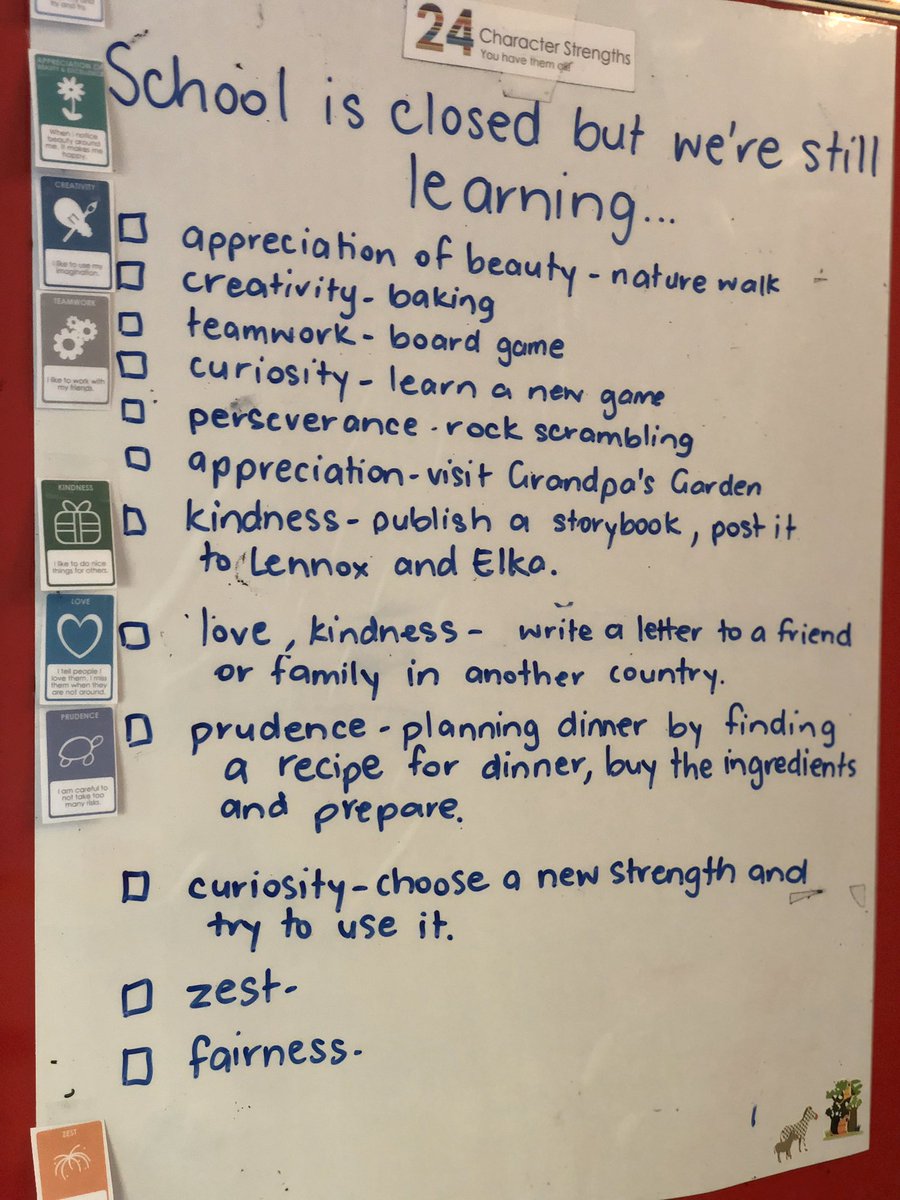 try and try.
24 Character Strengths
You have them all
School is closed but we're still
learning...
APPRECIATION OF
BEAUTY & EXCELLENCE
When I notice
beauty around
me, it makes me
happy.
CREATIVITY
I like to use my
imagination.
TEAMWORK
I like to work with
my friends.
□ appreciation of beauty - nature walk
□ creativity - baking
□ teamwork - board game
□ curiosity - learn a new game
□ perseverance - rock scrambling
□ appreciation - visit Grandpa's Garden
KINDNESS
I like to do nice
things for others.
□ kindness - publish a storybook, post it
to Lennox and Elka.
LOVE
I tell people I
love them. I miss
them when they
are not around.
□ love, kindness - write a letter to a friend
or family in another country.
PRUDENCE
I am careful to
not take too
many risks.
□ prudence - planning dinner by finding
a recipe for dinner, buy the ingredients
and prepare.
□ curiosity - choose a new strength and
try to use it.
□ zest -
□ fairness -
ZEST